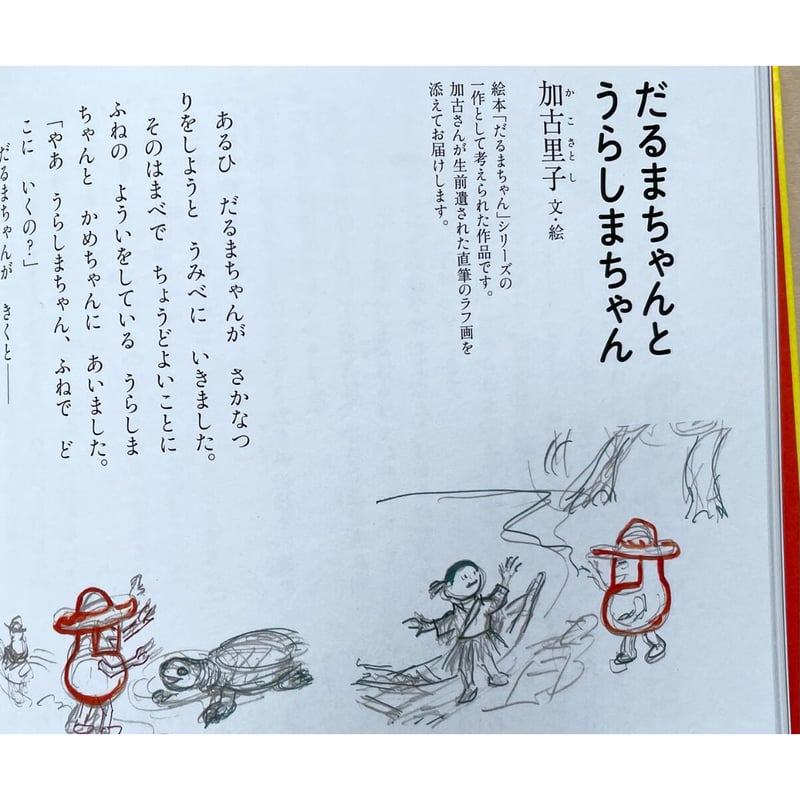 だるまちゃんと
うらしまちゃん
かこさとし
加古里子 文・絵
絵本「だるまちゃん」シリーズの
一作として考えられた作品です。
加古さんが生前遺された直筆のラフ画を
添えてお届けします。
あるひ だるまちゃんが さかなつ
りをしようと うみべに いきました。
そのはまべで ちょうどよいことに
ふねの よういをしている うらしま
ちゃんと かめちゃんに あいました。
「やあ うらしまちゃん、ふねで ど
こに いくの?」
だるまちゃんが きくと――